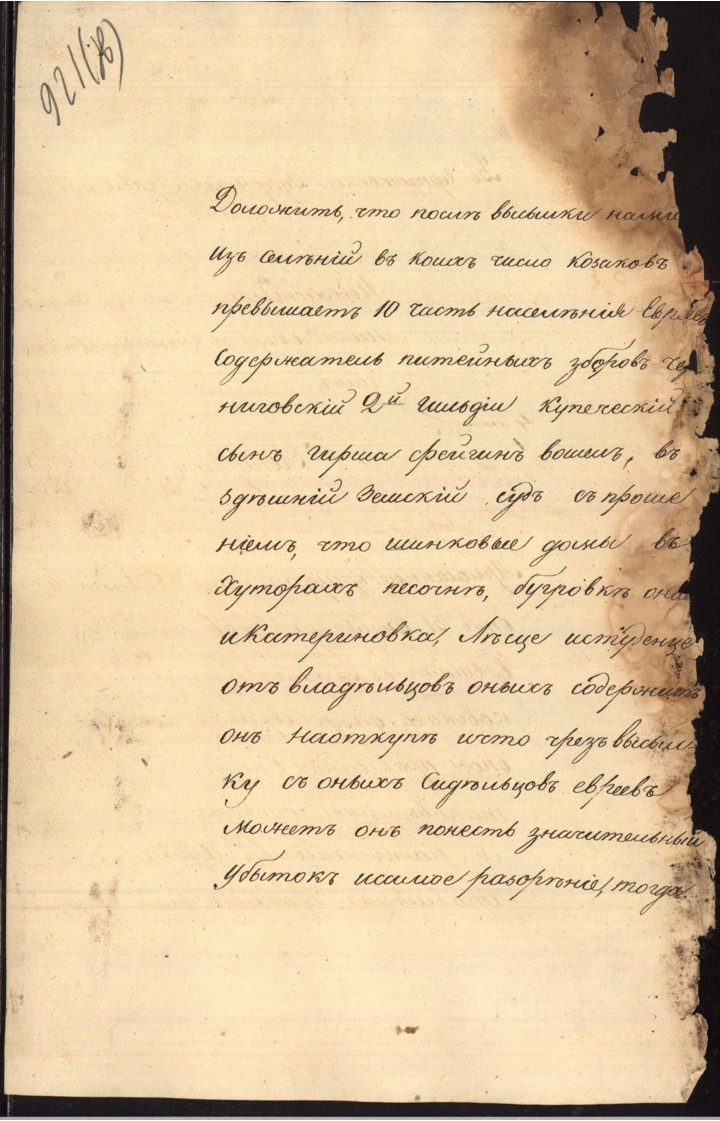 921(4в)
Доложить, что после вылышки нами
изъ селѣній въ коихъ число козаковъ
превышаетъ 10 часть населѣнія Евреевъ
Содержатель питейныхъ зборовъ Чер
ниговскій 2й Гильдіи купеческій
сынъ Гирша Фейгинъ вошелъ, въ
здѣшній Земскій судъ съ проше
ніемъ, что шинковые домы въ
Хуторахъ песочнѣ, бугровкѣ она
иКатериновка, Лѣще истуденце
отъ владѣльцовъ оныхъ содержитъ
онъ наоткупѣ ичто чрезъ высыл
ку съ оныхъ Сидѣльцовъ евреевъ
можетъ онъ понесть значительный
убытокъ исамое разорѣніе, тогда